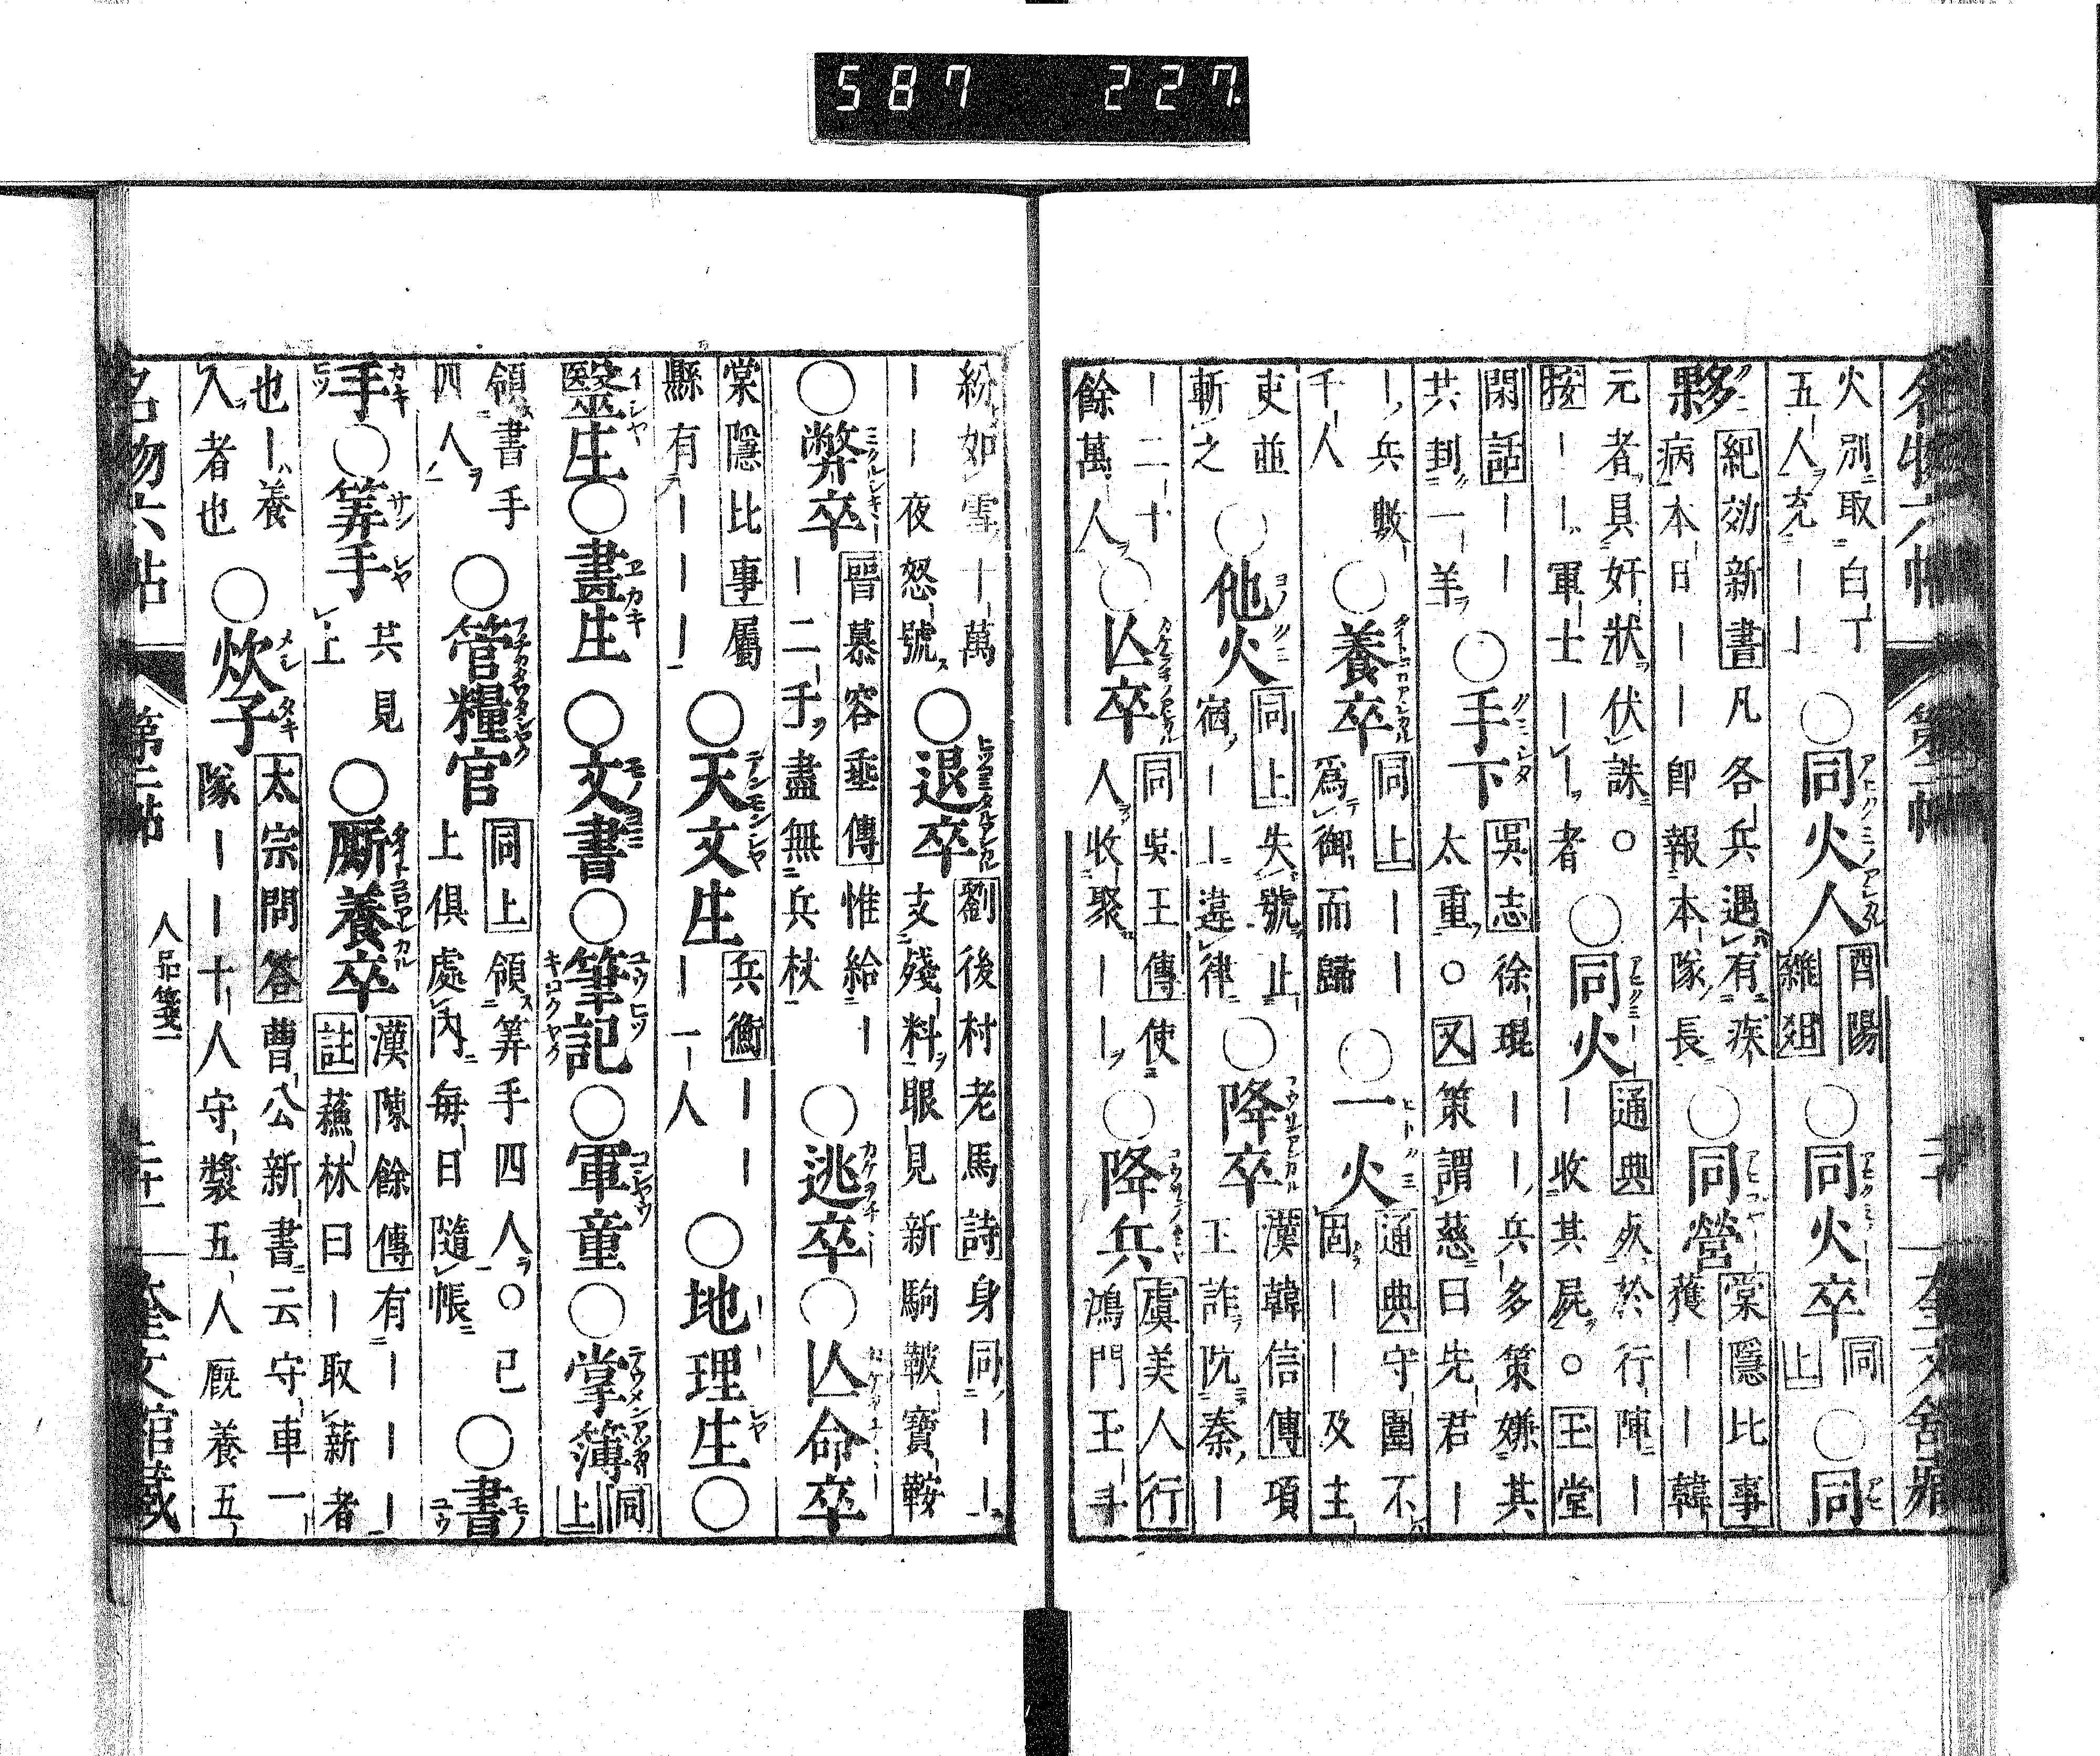 587 227.
火別取白丁
五人充丨丨○同火人酉陽雜俎○同火卒同上○同
夥紀効新書凡各兵遇有疾
病本日丨丨即報本隊長○同營棠隱比事獲丨丨韓
元者具奸狀伏誅○
按丨丨軍士丨丨者○同火通典於行陣丨
丨收其屍○玉堂
閑話丨丨
共刲一羊○手下吳志徐琨丨丨兵多策嫌其
太重○又策謂慈曰先君丨
丨兵數
千人○養卒同上丨丨
爲御而歸○一火通典守圍不
固丨丨及主
吏並
斬之○他火同上失號止
宿丨丨違律○降卒漢韓信傳項
王詐阬秦丨
丨二十
餘萬人○亾卒同吳王傳使
人收聚丨丨○降兵虞美人行
鴻門玉斗
紛如雪十萬
丨丨夜怒號○退卒劉後村老馬詩身同丨丨
支殘料眼見新駒鞁寶鞍
○弊卒晉慕容垂傳惟給丨
丨二千盡無兵杖○逃卒○亾命卒
棠隱比事屬
縣有丨丨丨○天文生兵衡丨丨
丨一人○地理生○
醫生○畫生○文書○筆記○軍童○掌簿同上
領書手
四人○管糧官同上領筭手四人○已
上俱處內每日隨帳○書
手○筭手共見
上○厮養卒漢陳餘傳有丨丨丨
註蘇林曰丨取薪者
也丨養
人者也○炊子太宗問答曹公新書云守車一
隊丨丨十人守裝五人廐養五
名物六帖 第二帖 人品箋一 二十一 奎文館藏